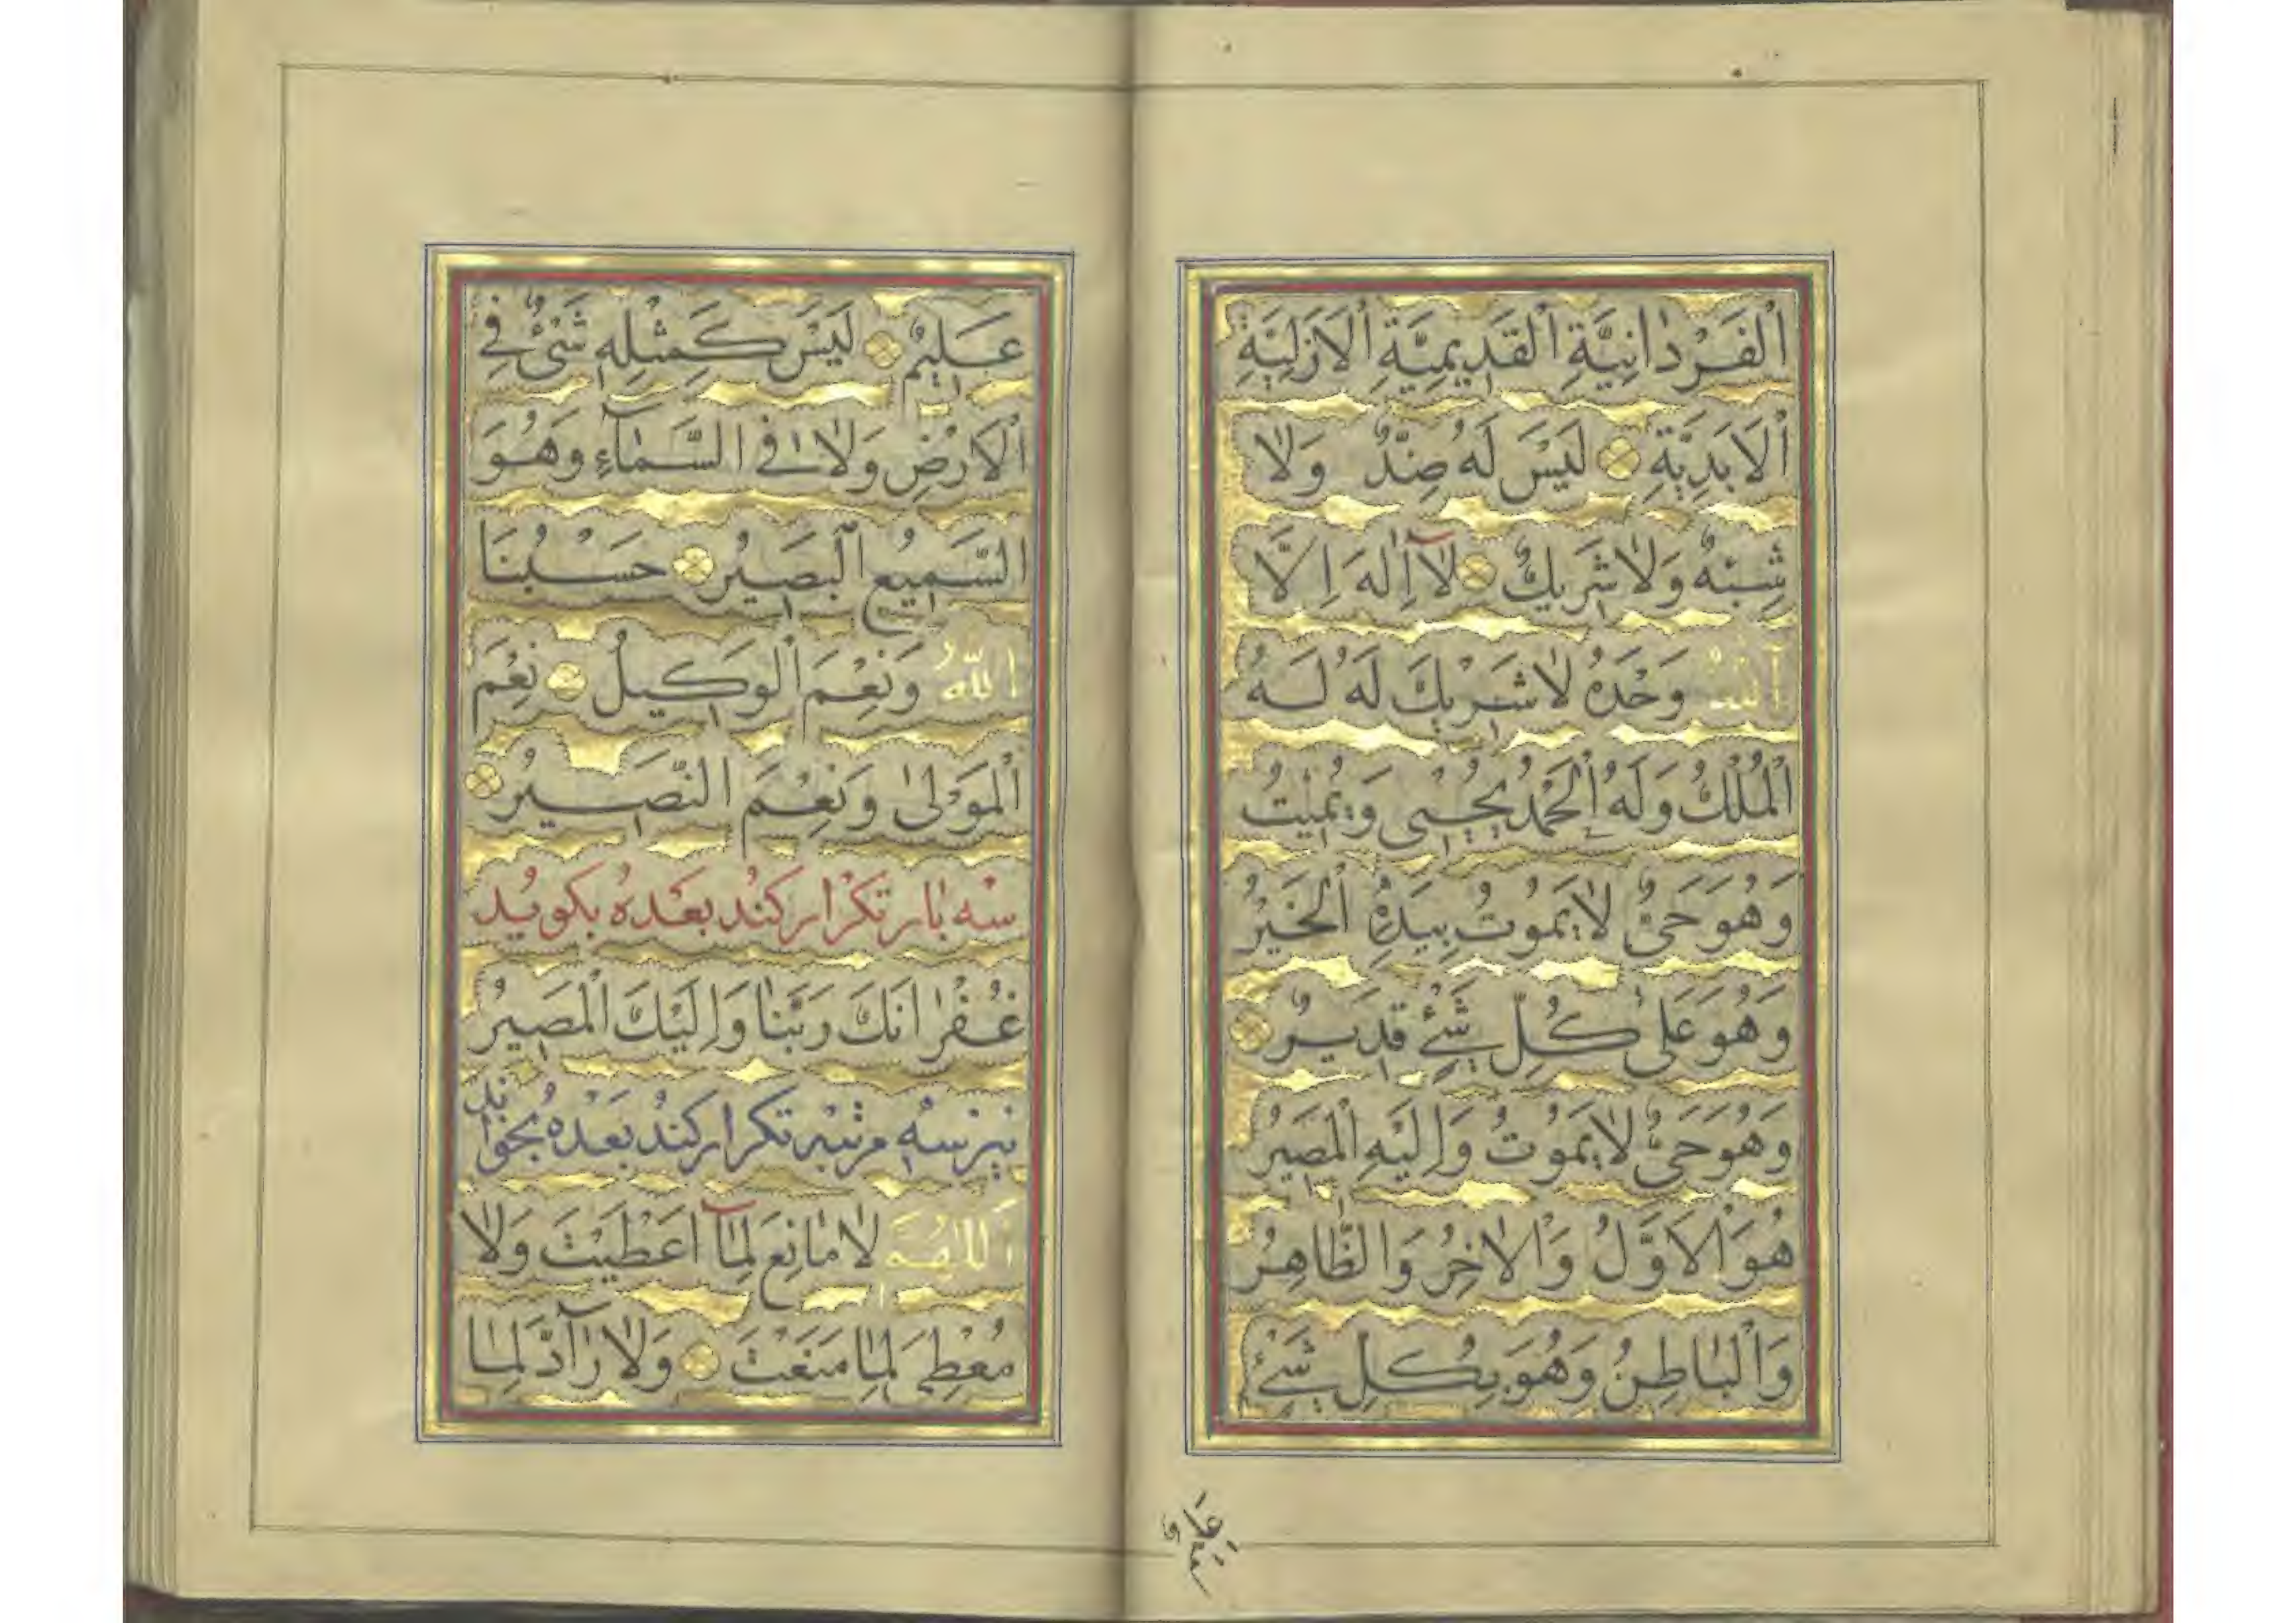 اَلْفَرْدَانِيَّةِ اَلْقَدِيمِيَّةِ اَلْاَزَلِيَّةِ
اَلْاَبَدِيَّةِ لَيْسَ لَهُ ضِدٌّ وَلَا
شِبْهٌ وَلَا شَرِيكٌ لَآاِلٰهَ اِلَّا
اَللّٰهُ وَحْدَهُ لَا شَرِيكَ لَهُ لَهُ
اَلْمُلْكُ وَلَهُ اَلْحَمْدُ يُحْيِى وَيُمِيتُ
وَهُوَ حَىٌّ لَا يَمُوتُ بِيَدِهِ اَلْخَيْرُ
وَهُوَ عَلٰى كُلِّ شَىْءٍ قَدِيرٌ
وَهُوَ حَىٌّ لَا يَمُوتُ وَاِلَيْهِ اَلْمَصِيرُ
هُوَ اَلْاَوَّلُ وَاْلاٰخِرُ وَالظَّاهِرُ
وَاَلْبَاطِنُ وَهُوَ بِكُلِّ شَىْءٍ
عَلِيمٌ لَيْسَ كَمِثْلِهِ شَىْءٌ فِى
اَلْاَرْضِ وَلَا فِى السَّمَآءِ وَهُوَ
السَّمِيعُ اَلْبَصِيرُ حَسْبُنَا
اللّٰهُ وَنِعْمَ اَلْوَكِيلُ نِعْمَ
اَلْمَوْلٰى وَنِعْمَ النَّصِيرُ
سه بار تكرار كند بعده بكويد
غُفْرَانَكَ رَبَّنَا وَاِلَيْكَ اَلْمَصِيرُ
نيز سه مرتبه تكرار كند بعده بخواند
اَللّٰهُمَّ لَا مَانِعَ لِمَآ اَعْطَيْتَ وَلَا
مُعْطِىَ لِمَا مَنَعْتَ وَلَا رَآدَّ لِمَا